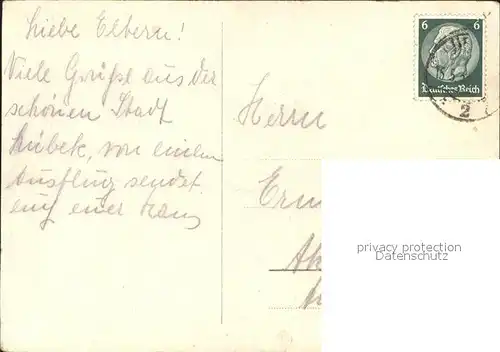 Liebe Eltern!
Viele Grüße aus der
schönen Stadt
Lübek, von einem
Ausflug sendet
euch euer Hans
6 6
Deutsches Reich
2
Herrn
privacy protection
Datenschutz